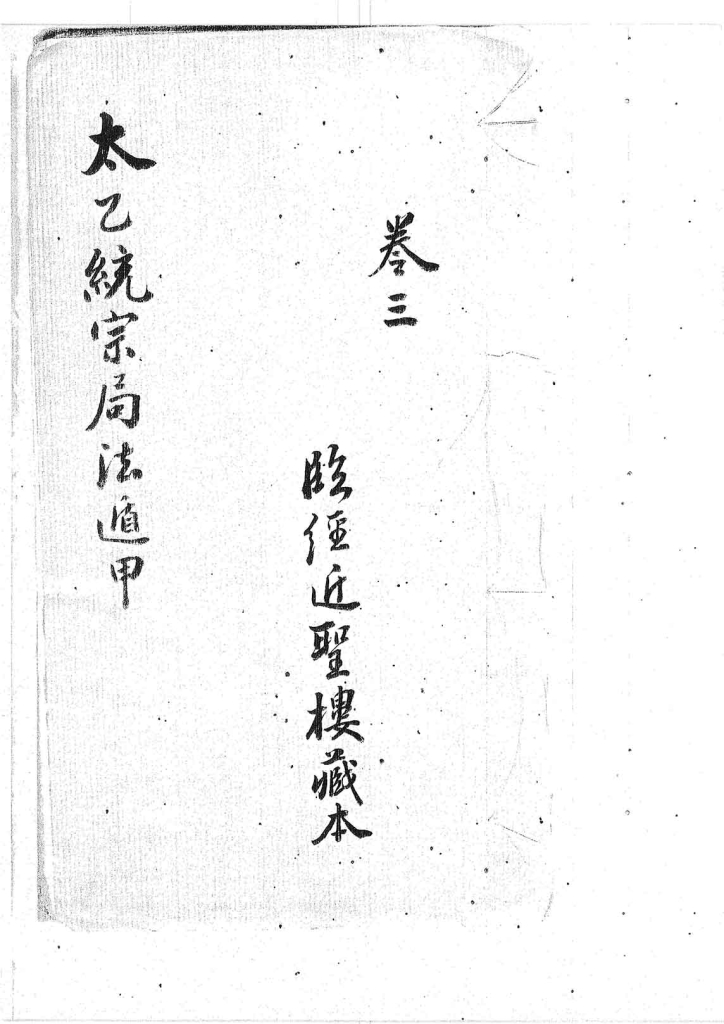 卷三
臨徑近聖樓藏本
太乙統宗局法遁甲